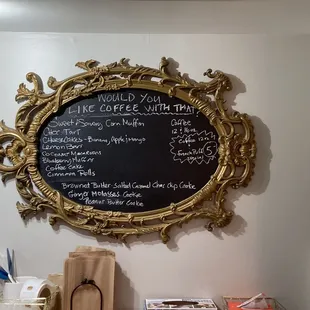 WOULD YOU
LIKE COFFEE WITH THAT?
Sweet & Savory Corn Muffin
Cheesecakes - Banana, Apple, Mango
Lemon Bar
Coconut Macaroons
Blueberry Muffins
Coffee Cake
Cinnamon Rolls
Coffee
12
Coffee
Browned Butter Salted Caramel Choc Chip Cookie
Ginger Molasses Cookie
Peanut Butter Cookie